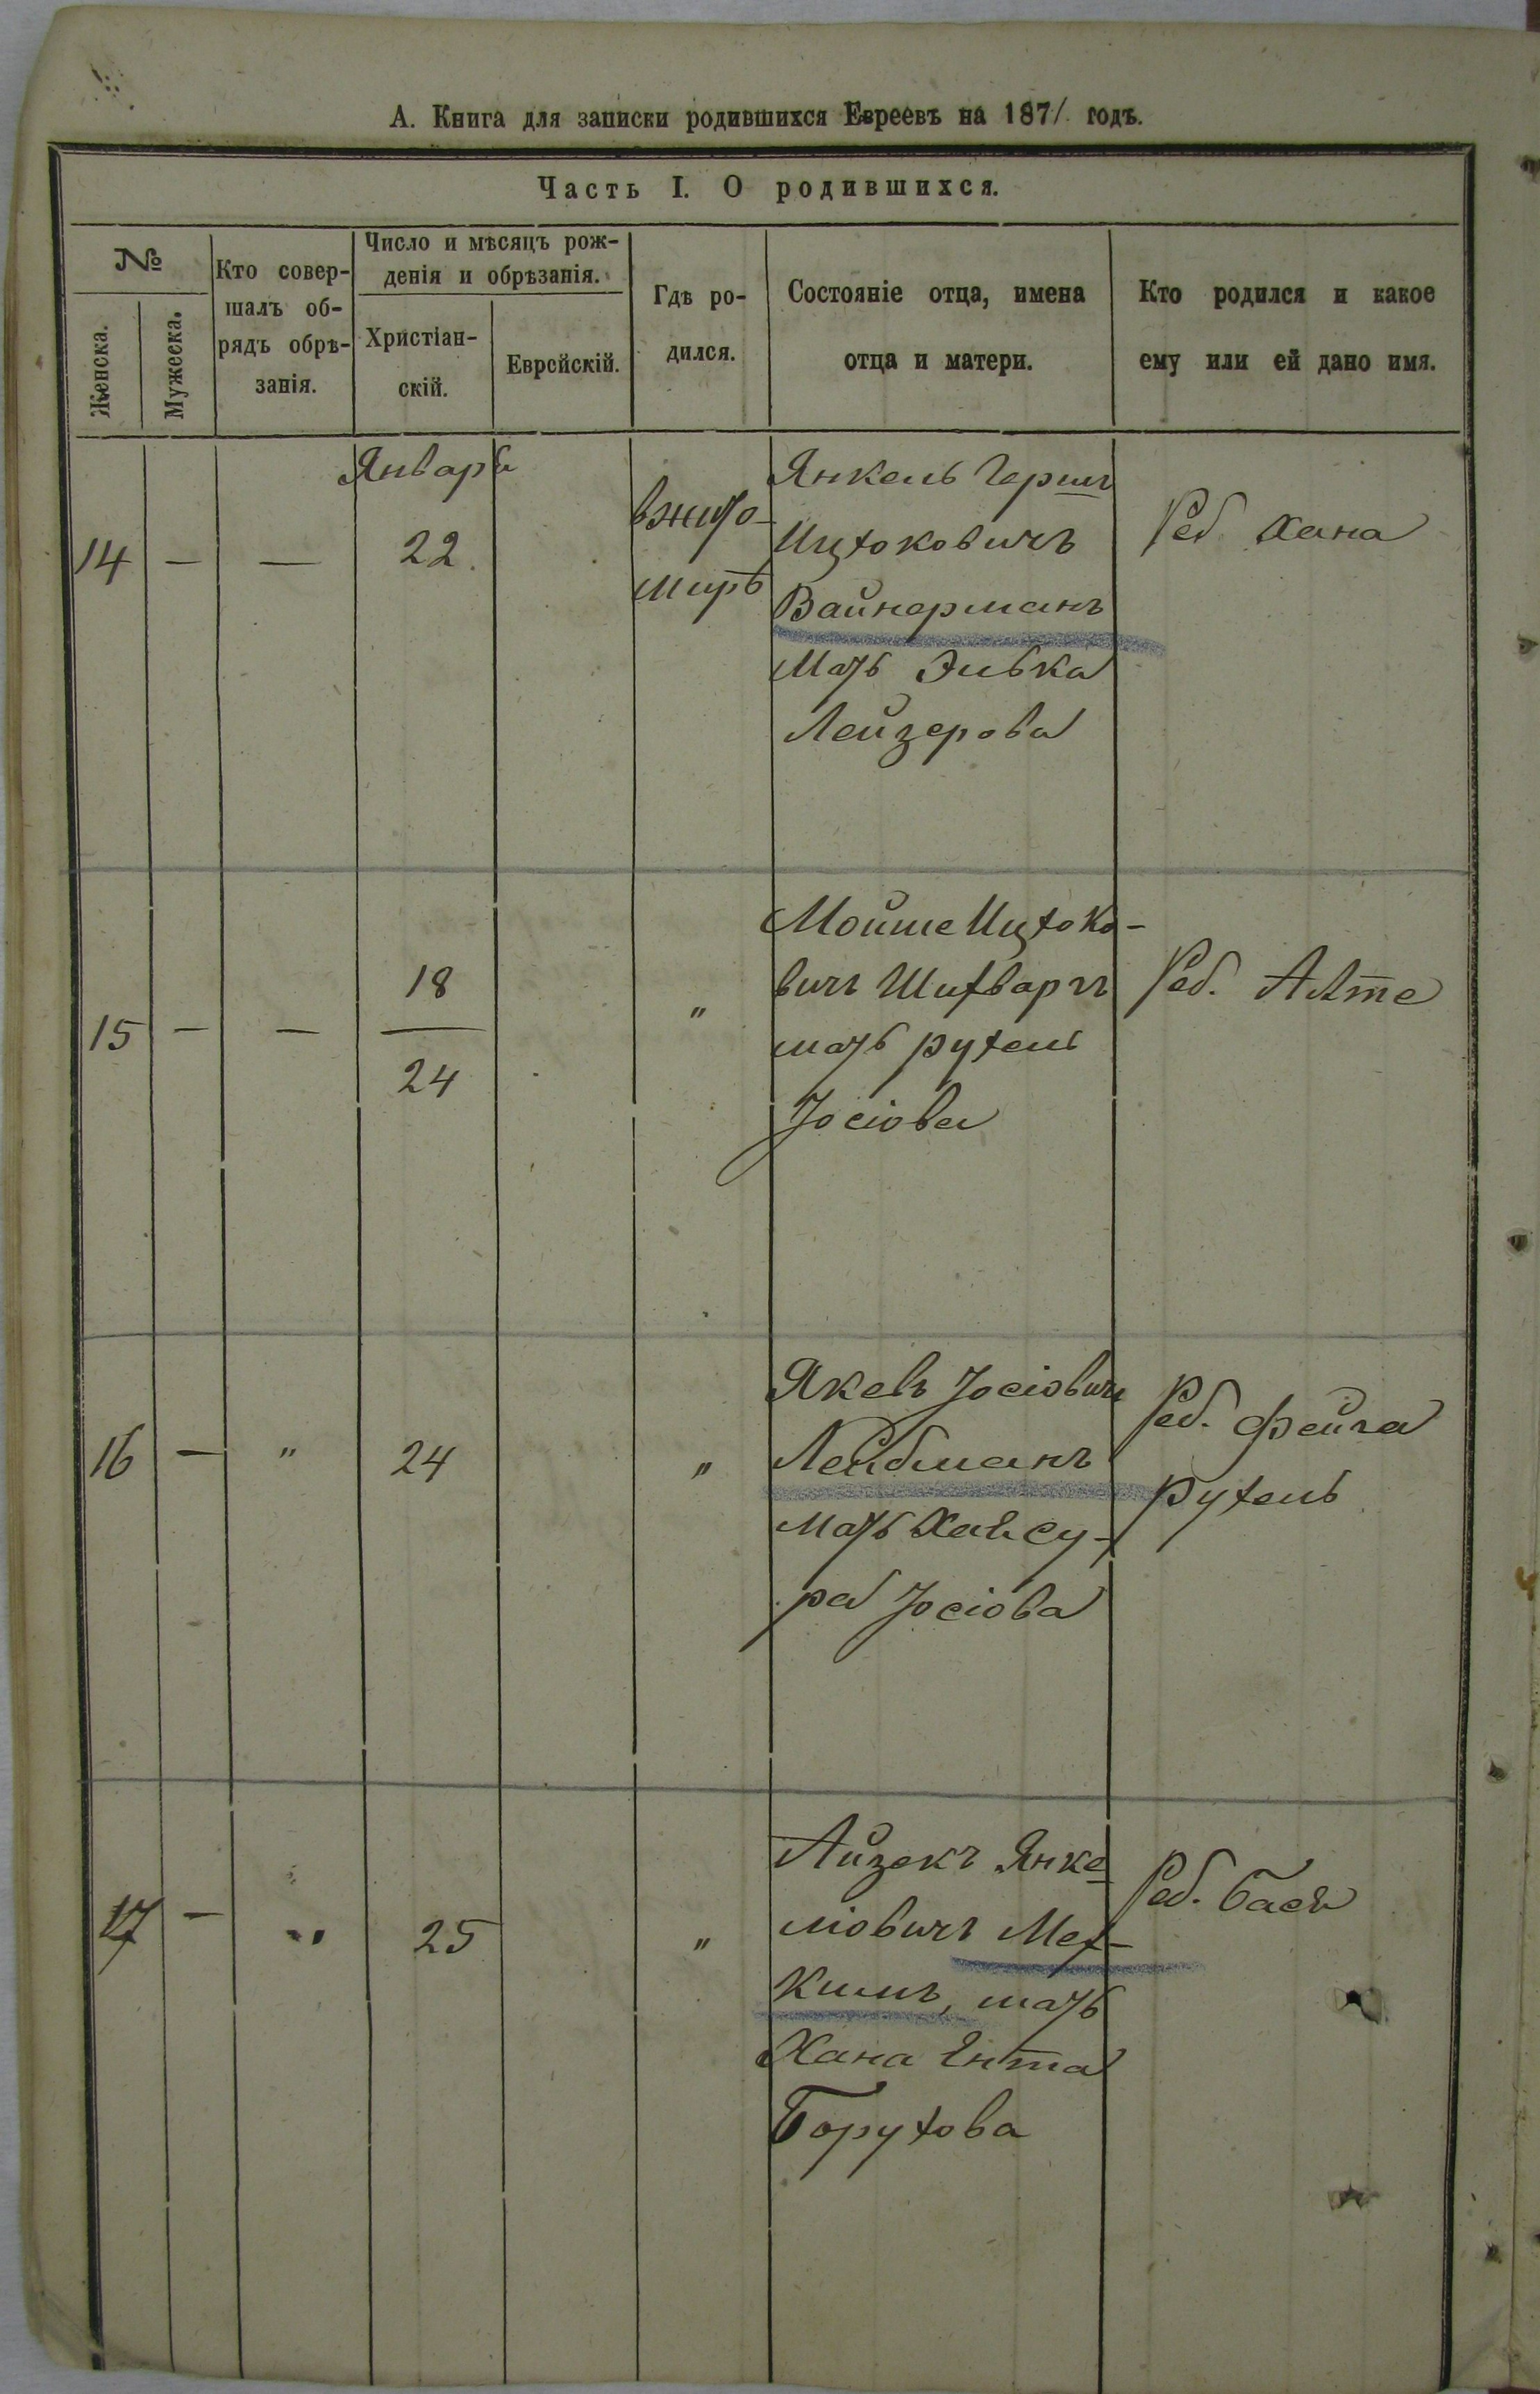 А. Книга для записки родившихся Евреевъ на 1871 годъ.
Часть I. О родившихся.
№
Женска.
Мужеска.
Кто совер-
шалъ об-
рядъ обрѣ-
занія.
Число и мѣсяцъ рож-
денія и обрѣзанія.
Христіан-
скій.
Еврейскій.
Гдѣ ро-
дился.
Состояніе отца, имена
отца и матери.
Кто родился и какое
ему или ей дано имя.
Января
14 — — 22.
вжито-
миръ
Янкель Гершъ
Ицхоковичъ
Вайнерманъ
Мать Зивка
Лейзерова
Реб. Хана
15 — — 18
24
"
Мойше Ицхоко-
вичъ Шихваргъ
мать рухель
Іосіова
Реб. Алте
16 — " 24 "
Якевъ Іосіовичъ
Лейбманъ
мать Хая Су-
ра Іосіова
Реб. Фейга
Рухель
17 — " 25 "
Айзекъ Янке
ліовичъ Мех-
мать
Хана Ента
Борухова
Реб. Бася